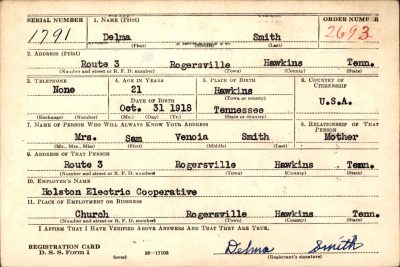 SERIAL NUMBER 1. NAME (Print) ORDER NUMBER
1791 Delma Smith 2693
(First) (Middle) (Last)
2. ADDRESS (Print)
Route 3 Rogersville Hawkins Tenn.
(Number and street or R. F. D. number) (Town) (County) (State)
3. TELEPHONE 4. AGE IN YEARS 5. PLACE OF BIRTH 6. COUNTRY OF CITIZENSHIP
None 21 Hawkins
DATE OF BIRTH (Town or county)
Oct. 31 1918 Tennessee U.S.A.
(Exchange) (Number) (Mo.) (Day) (Yr.) (State or country)
7. NAME OF PERSON WHO WILL ALWAYS KNOW YOUR ADDRESS 8. RELATIONSHIP OF THAT PERSON
Mrs. Sam Venoia Smith Mother
(Mr., Mrs., Miss) (First) (Middle) (Last)
9. ADDRESS OF THAT PERSON
Route 3 Rogersville Hawkins Tenn.
(Number and street or R. F. D. number) (Town) (County) (State)
10. EMPLOYER'S NAME
Holston Electric Cooperative
11. PLACE OF EMPLOYMENT OR BUSINESS
Church Rogersville Hawkins Tenn.
(Number and street or R. F. D. number) (Town) (County) (State)
I AFFIRM THAT I HAVE VERIFIED ABOVE ANSWERS AND THAT THEY ARE TRUE.
REGISTRATION CARD
D. S. S. Form 1 (over) 16—17105
Delma Smith
(Registrant's signature)